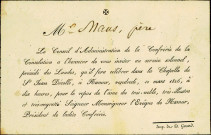 Mr. Maus, père
Le Conseil d'Administration de la Confrérie de la
Consolation a l'honneur de vous inviter au service solennel,
précédé des Laudes, qu'il fera célébrer dans la Chapelle de
St Jean Decollé, à Namur, vendredi, 10 mars 1826, à
dix heures, pour le repos de l'âme de très-noble, très-illustre
et révérendissime Seigneur Monseigneur l'Evêque de Namur,
Président de ladite Confrérie.
Imp. de D. Gérard.